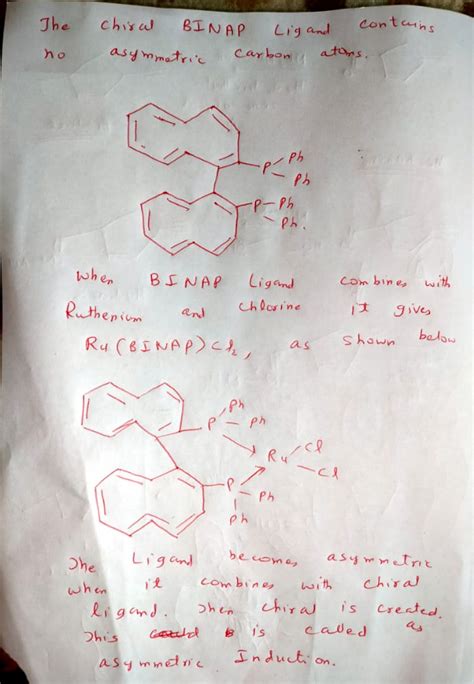 The chiral BINAP Ligand contains
no asymmetric carbon atoms.
P Ph
Ph
P Ph
Ph.
When BINAP Ligand combines with
Ruthenium and chlorine it gives
Ru(BINAP)Cl2, as shown below
P Ph Ph
Ru Cl
Cl
P Ph
Ph
The Ligand becomes asymmetric
when it combines with chiral
ligand. Then chiral is created.
This is called as
asymmetric Induction.